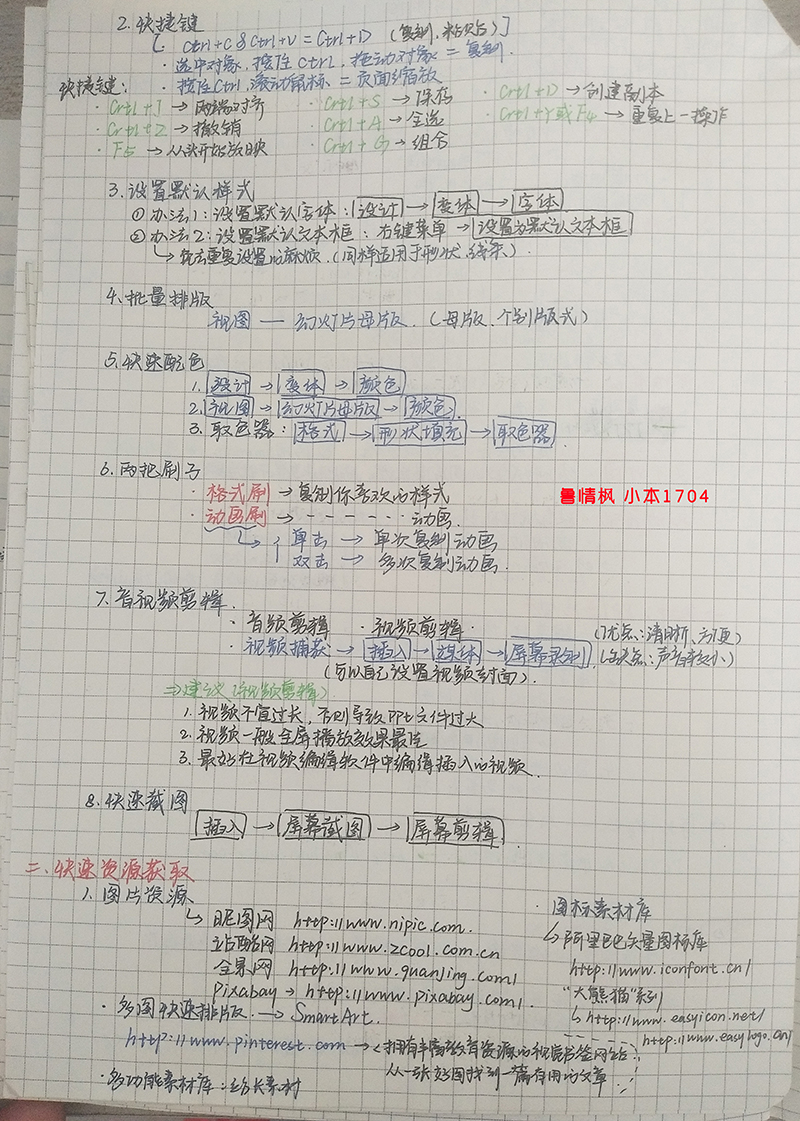 2. 快捷键
[ Ctrl+C & Ctrl+V = Ctrl+D (复制、粘贴)]
· 选中对象，按住Ctrl，拖动对象 = 复制.
· 按住Ctrl，滚动鼠标 = 页面缩放
快捷键：
· Crtl+J → 两端对齐 · Crtl+S → 保存 · Crtl+D → 创建副本
· Crtl+Z → 撤销 · Crtl+A → 全选 · Crtl+Y或F4 → 重复上一操作
· F5 → 从头开始放映 · Crtl+G → 组合
3. 设置默认样式
① 办法1：设置默认字体：设计 → 变体 → 字体
② 办法2：设置默认文本框：右键菜单 → 设置为默认文本框
↳ 免去重复设置的麻烦.(同样适用于形状、线条).
4. 批量排版
视图 — 幻灯片母版.(母版、个别版式)
5. 快速配色
1. 设计 → 变体 → 颜色
2. 视图 → 幻灯片母版 → 颜色.
3. 取色器：格式 → 形状填充 → 取色器.
6. 两把刷子
· 格式刷 → 复制你喜欢的样式
鲁情枫 小本1704
· 动画刷 → - - - - - - 动画.
↳ { 单击 → 单次复制动画
双击 → 多次复制动画.
7. 音视频剪辑.
· 音频剪辑 · 视频剪辑.
· 视频捕获 → 插入 → 媒体 → 屏幕录制 (优点：清晰、方便)
(缺点：声音较小)
(可以自己设置视频封面).
⇒建议(视频剪辑)
1. 视频不宜过长，否则导致PPt文件过大
2. 视频一般全屏播放效果最佳
3. 最好在视频编缉软件中编缉插入的视频.
8. 快速截图
插入 → 屏幕截图 → 屏幕剪辑.
二、快速资源获取
1. 图片资源
↳ 昵图网 http://www.nipic.com.
站酷网 http://www.zcool.com.cn
全景网 http://www.quanjing.com/
pixabay → http://www.pixabay.com/
· 多图快速排版. → SmartArt.
http://www.pinterest.com → 拥有丰富教育资源的视觉书签网站
从一张好图找到一篇有用的文章.
· 多功能素材库：站长素材
· 图标素材库
↳ 阿里巴巴矢量图标库
http://www.iconfont.cn/
"大熊猫"系列
↳ http://www.easyicon.net/
http://www.easylogo.cn/